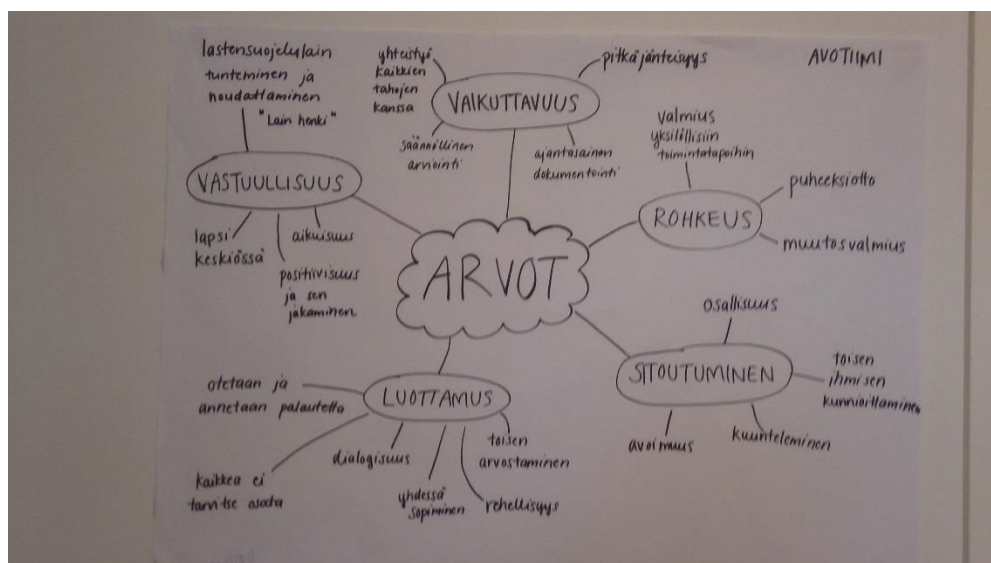 AVOTIIMI
ARVOT
VASTUULLISUUS
lastensuojelulain
tunteminen ja
noudattaminen
"Lain henki"
lapsi
keskiössä
positiivisuus
ja sen
jakaminen
aikuisuus
VAIKUTTAVUUS
yhteistyö
kaikkien
tahojen
kanssa
pitkäjänteisyys
säännöllinen
arviointi
ajantasainen
dokumentointi
ROHKEUS
valmius
yksilöllisiin
toimintatapoihin
puheeksiotto
muutosvalmius
SITOUTUMINEN
osallisuus
toisen
ihmisen
kunnioittaminen
kuunteleminen
avoimuus
LUOTTAMUS
otetaan ja
annetaan palautetta
kaikkea ei
tarvitse osata
dialogisuus
yhdessä
sopiminen
rehellisyys
toisen
arvostaminen